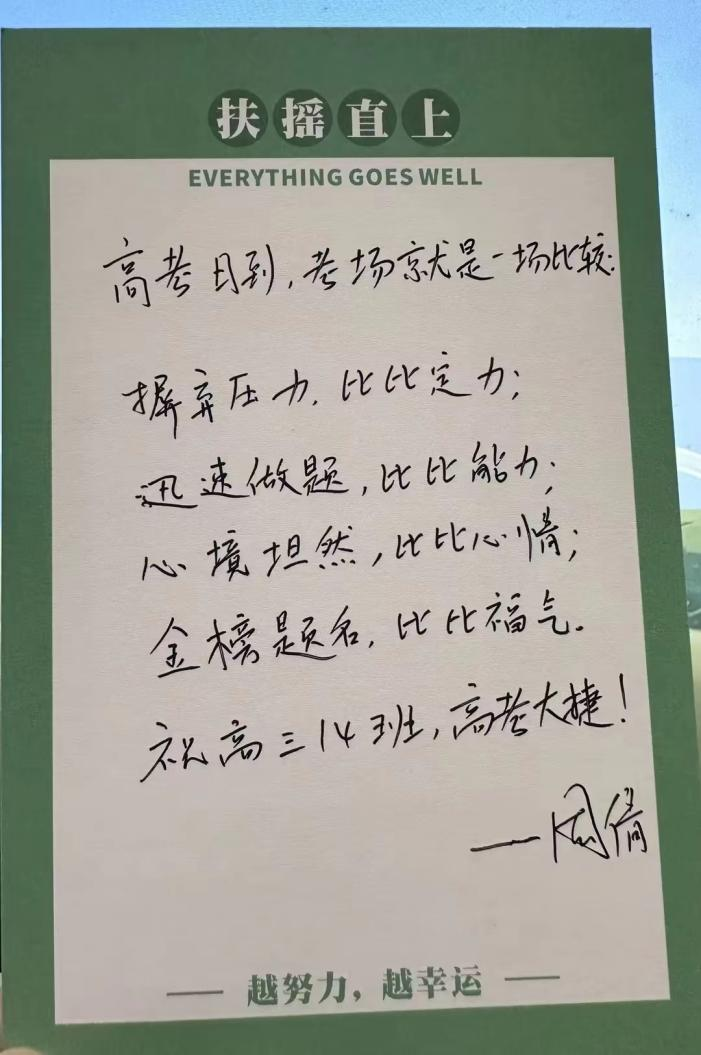 扶摇直上
EVERYTHING GOES WELL
高考日到,考场就是一场比较:
摒弃压力,比比定力;
迅速做题,比比能力;
心境坦然,比比心情;
金榜题名,比比福气。
祝高三14班,高考大捷!
——周倩
—— 越努力,越幸运 ——